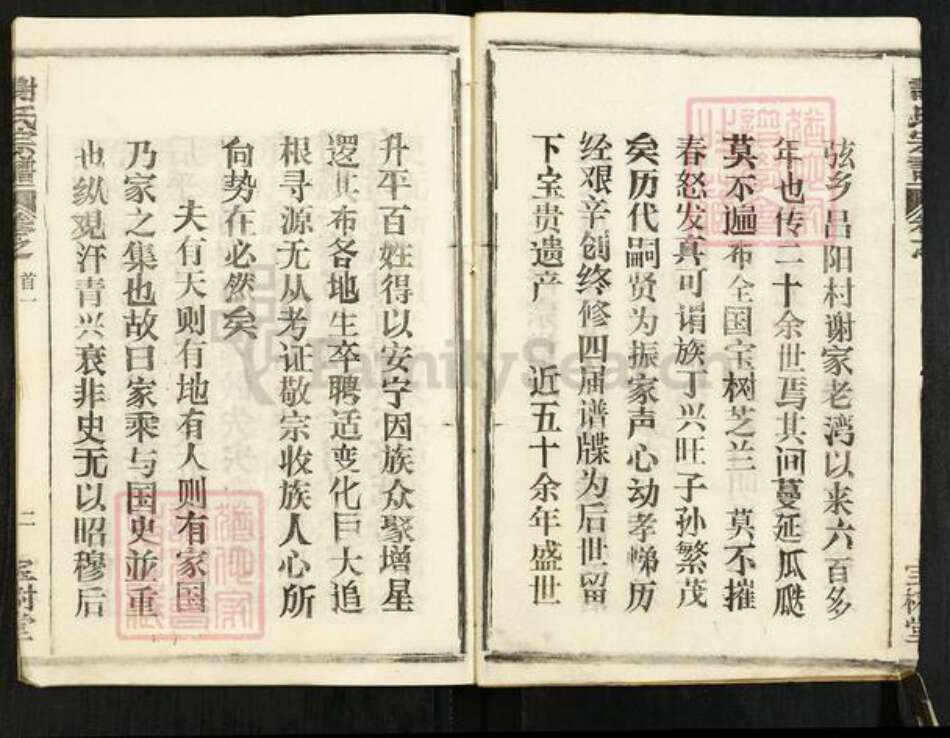 弦乡吕阳村谢家老湾以来六百多
年也传二十余世焉其间蔓延瓜瓞
莫不遍布全国宝树芝兰 莫不摧
春怒发真可谓族丁兴旺子孙繁茂
矣历代嗣贤为振家声心动孝悌历
经艰辛创终修四届谱牒为后世留
下宝贵遗产 近五十余年盛世
升平百姓得以安宁因族众聚增星
逻其布各地生卒聘适变化巨大追
根寻源无从考证敬宗收族人心所
向势在必然矣
夫有天则有地有人则有家国
乃家之集也故曰家乘与国史並重
也纵观汗青兴衰非史无以昭穆后
謝氏宗譜 卷之首一 二 宝树堂
FamilySearch